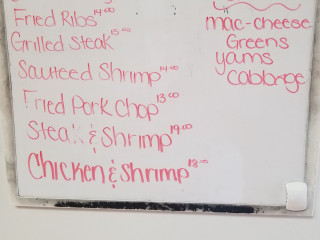 Fried Ribs 14.00
Grilled Steak 15.00
Sauteed Shrimp 14.00
Fried Pork Chop 13.00
Steak & Shrimp 19.00
Chicken & Shrimp 18.00
mac-cheese
Greens
yams
Cabbage